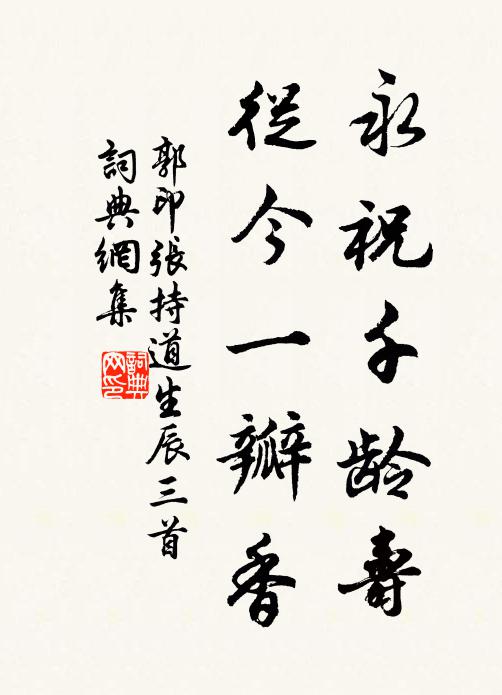 永祝千龄壽
從今一瓣香
郭印張持道生辰三首
詞典網集
詞典网印